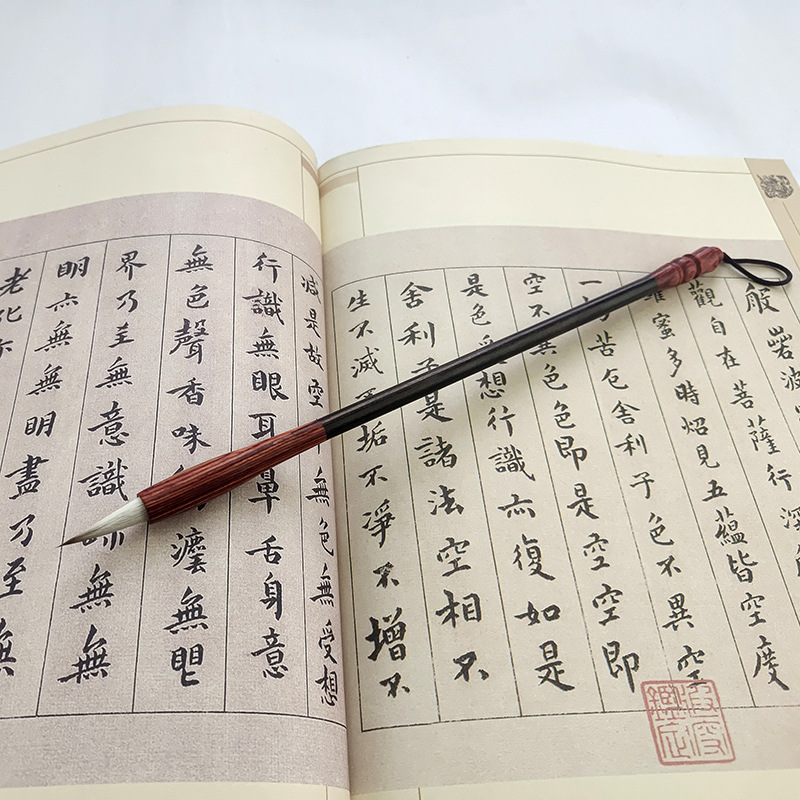 般若波
觀自在菩薩行深
蜜多時炤見五蘊皆空度
一切苦厄舍利子色不異空
空不異色色即是空空即
是色受想行識亦復如是
舍利子是諸法空相不
生不滅不垢不淨不增不
減是故空無色無受想
行識無眼耳鼻舌身意
無色聲香味灋無眼
界乃至無意識無無
明亦無無明盡乃至無
老死亦